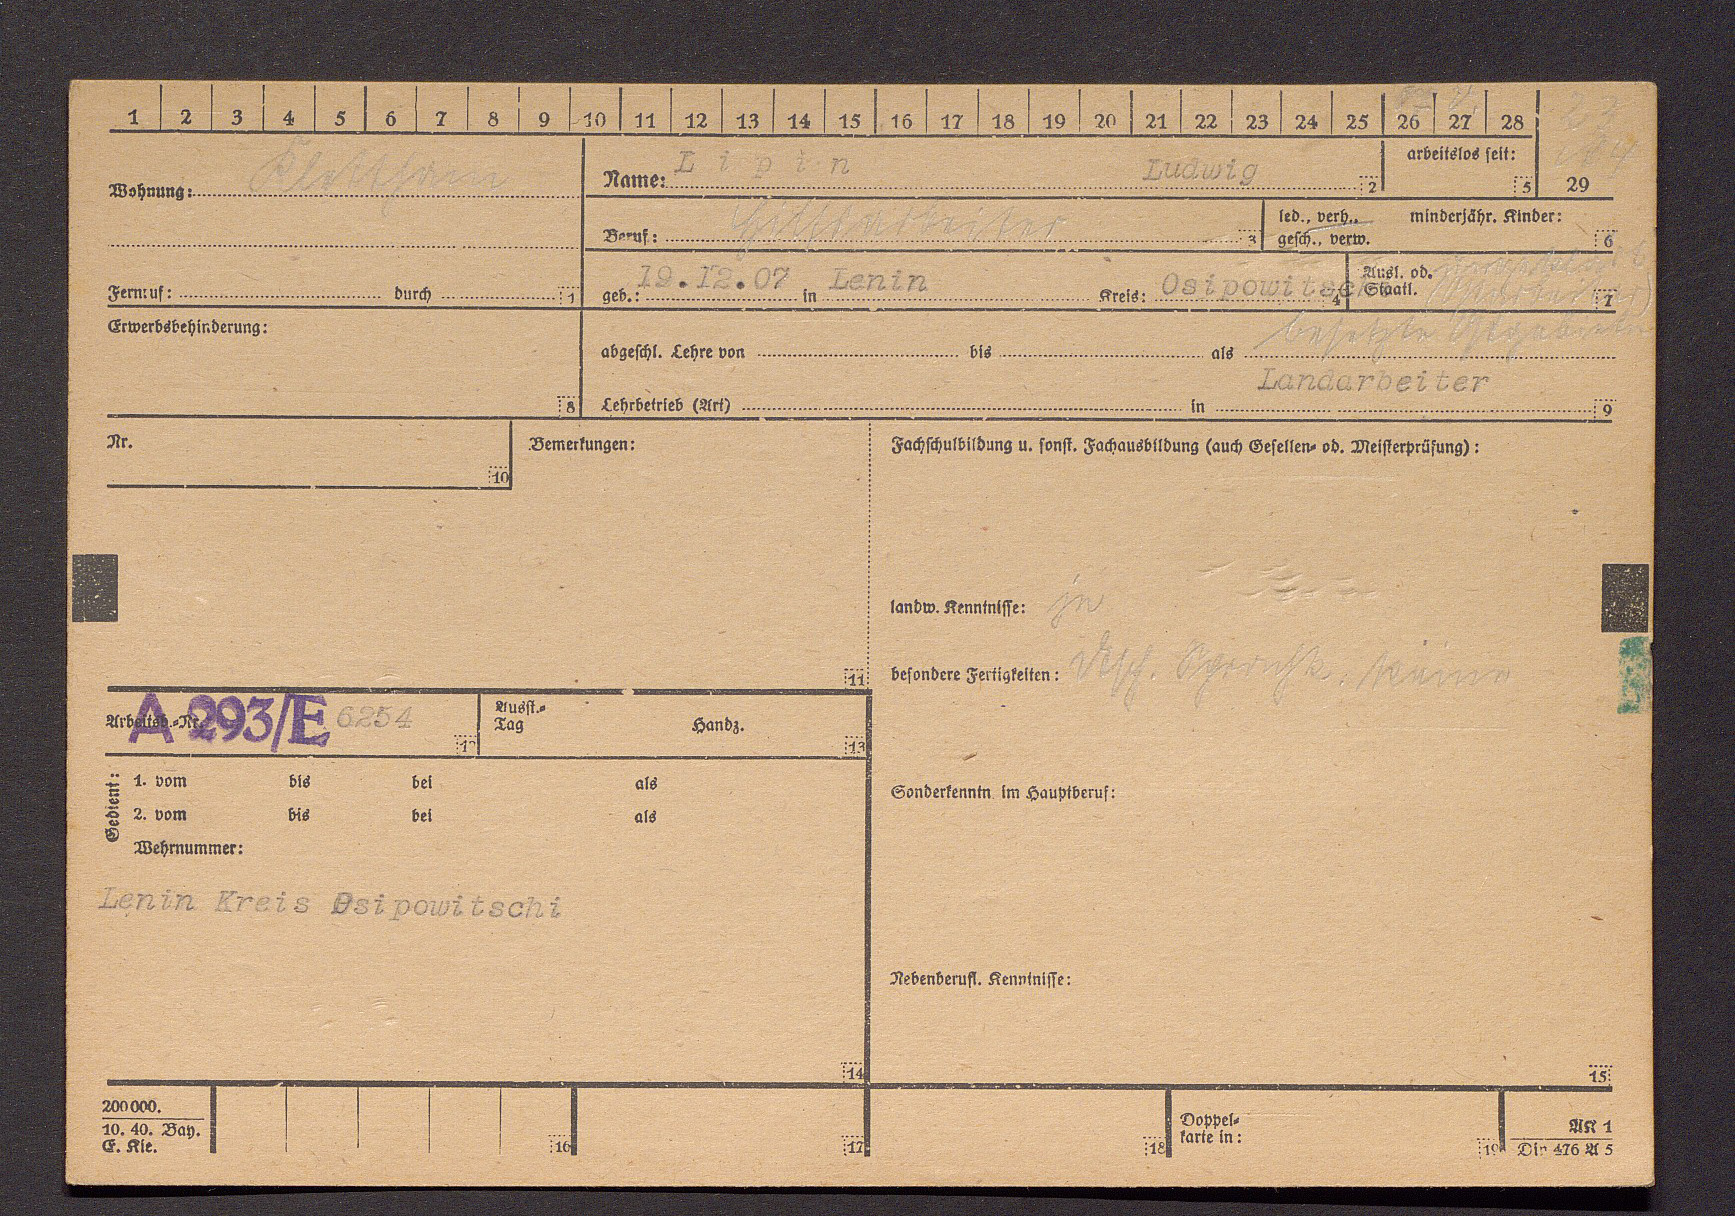 1 2 3 4 5 6 7 8 9 10 11 12 13 14 15 16 17 18 19 20 21 22 23 24 25 26 27 28
Wohnung: Klettham
Name: Lipin Ludwig 2
arbeitslos seit: 5
29
Beruf: Hilfsarbeiter 3
led., verh., minderjähr. Kinder:
gesch., verw. 6
Fernruf: durch 1
geb.: 19.12.07 in Lenin Kreis: Osipowitschi 4
Ausl. od.
Staatl. 7
besetzte Ostgebiete
Erwerbsbehinderung:
8
abgeschl. Lehre von bis als
Landarbeiter
Lehrbetrieb (Art) in 9
Nr.
10
Bemerkungen:
11
Fachschulbildung u. sonst. Fachausbildung (auch Gesellen- od. Meisterprüfung):
landw. Kenntnisse: ja
besondere Fertigkeiten: dtsch. Sprachk. keine
Arbeitsb.-Nr. A 293/E 6254
12
Ausst.-
Tag Handz.
13
Gedient:
1. vom bis bei als
2. vom bis bei als
Wehrnummer:
Lenin Kreis Osipowitschi
14
Sonderkenntn. im Hauptberuf:
Nebenberufl. Kenntnisse:
15
200000.
10. 40. Bay.
E. Kle.
16
17
18
Doppel-
karte in:
19
AK 1
Din 476 A 5